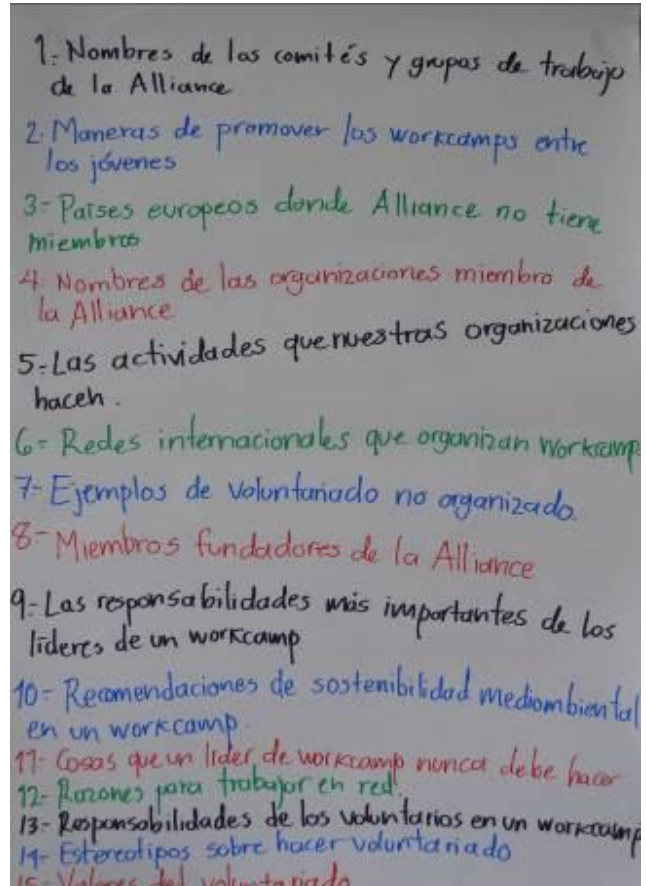 1.- Nombres de los comités y grupos de trabajo
de la Alliance
2. Maneras de promover los workcamps entre
los jóvenes
3- Países europeos donde Alliance no tiene
miembros
4. Nombres de las organizaciones miembro de
la Alliance
5.- Las actividades que nuestras organizaciones
hacen.
6- Redes internacionales que organizan workcamp
7- Ejemplos de voluntariado no organizado.
8- Miembros fundadores de la Alliance
9.- Las responsabilidades más importantes de los
líderes de un workcamp
10- Recomendaciones de sostenibilidad mediombiental
en un workcamp.
11- Cosas que un líder de workcamp nunca debe hacer
12- Razones para trabajar en red.
13- Responsabilidades de los voluntarios en un workcamp
14- Estereotipos sobre hacer voluntariado
15- Valores del voluntariado